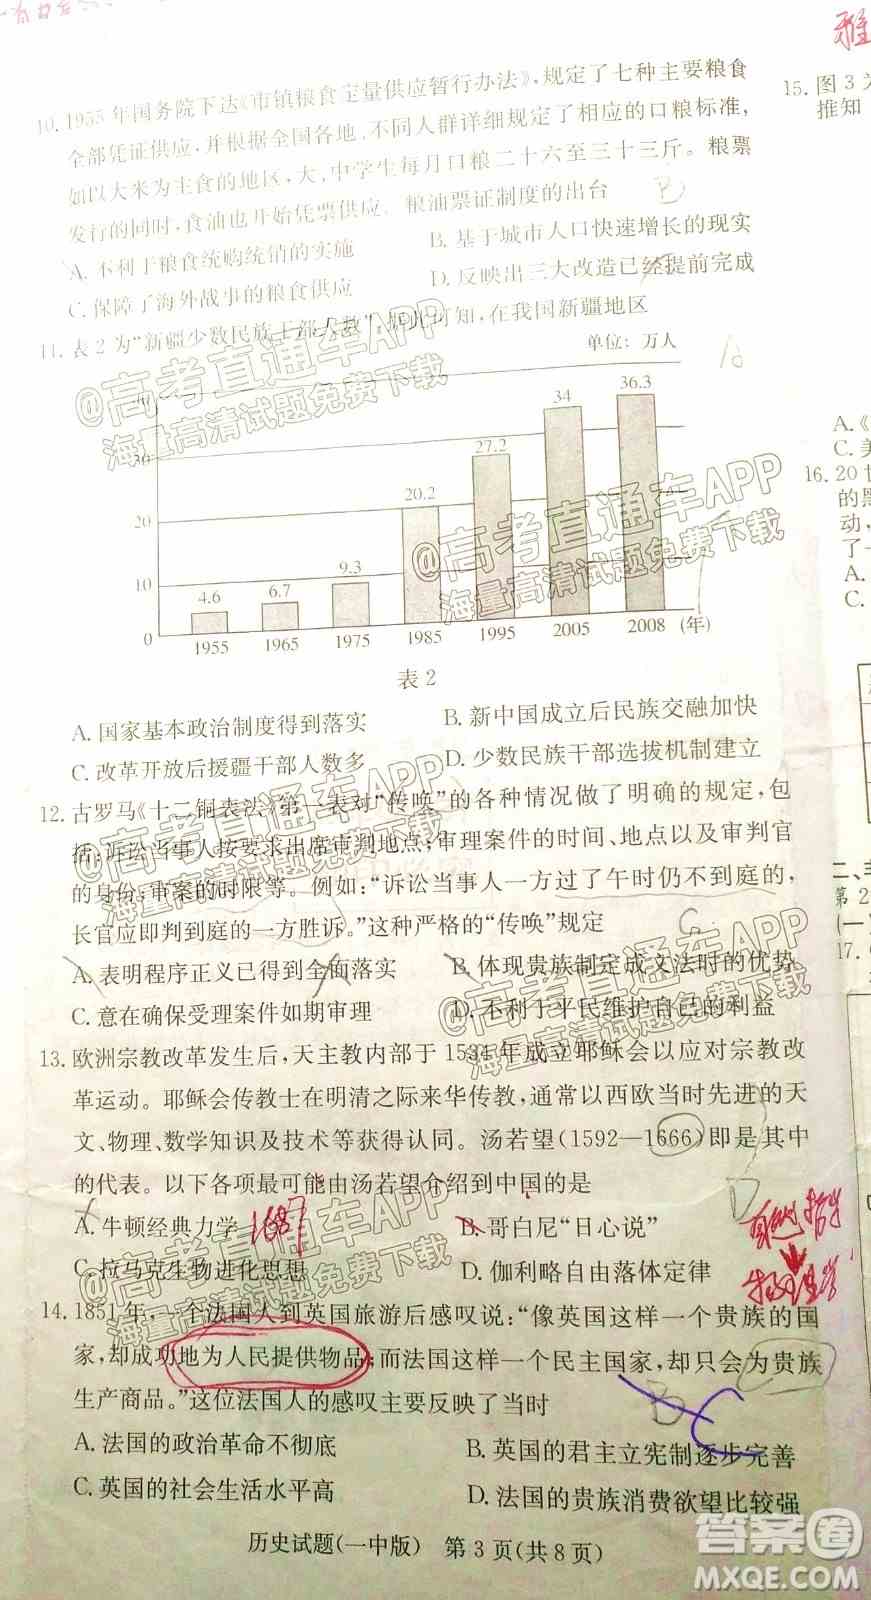 10. 1955年国务院下达《市镇粮食定量供应暂行办法》，规定了七种主要粮食
全部凭证供应，并根据全国各地、不同人群详细规定了相应的口粮标准，
如以大米为主食的地区，大、中学生每月口粮二十六至三十三斤。粮票
发行的同时，食油也开始凭票供应。粮油票证制度的出台
B
A. 不利于粮食统购统销的实施
B. 基于城市人口快速增长的现实
C. 保障了海外战事的粮食供应
D. 反映出三大改造已经提前完成
11. 表2为“新疆少数民族干部人数”，据此可知，在我国新疆地区
单位：万人
30
20
10
0
4.6
6.7
9.3
20.2
27.2
34
36.3
1955
1965
1975
1985
1995
2005
2008
(年)
表2
A. 国家基本政治制度得到落实
B. 新中国成立后民族交融加快
C. 改革开放后援疆干部人数多
D. 少数民族干部选拔机制建立
12. 古罗马《十二铜表法》第一表对“传唤”的各种情况做了明确的规定，包
括：诉讼当事人按要求出席审判地点；审理案件的时间、地点以及审判官
的身份；审案的时限等。例如：“诉讼当事人一方过了午时仍不到庭的，
长官应即判到庭的一方胜诉。”这种严格的“传唤”规定
C
A. 表明程序正义已得到全面落实
B. 体现贵族制定成文法时的优势
C. 意在确保受理案件如期审理
D. 不利于平民维护自己的利益
13. 欧洲宗教改革发生后，天主教内部于1534年成立耶稣会以应对宗教改
革运动。耶稣会传教士在明清之际来华传教，通常以西欧当时先进的天
文、物理、数学知识及技术等获得认同。汤若望(1592—1666)即是其中
的代表。以下各项最可能由汤若望介绍到中国的是
D
A. 牛顿经典力学
1687
B. 哥白尼“日心说”
C. 拉马克生物进化思想
D. 伽利略自由落体定律
14. 1851年，一个法国人到英国旅游后感叹说：“像英国这样一个贵族的国
家，却成功地为人民提供物品；而法国这样一个民主国家，却只会为贵族
生产商品。”这位法国人的感叹主要反映了当时
B
C
A. 法国的政治革命不彻底
B. 英国的君主立宪制逐步完善
C. 英国的社会生活水平高
D. 法国的贵族消费欲望比较强
历史试题(一中版) 第3页(共8页)
15. 图3为
推知
A.《
C. 美
16. 20世
的黑
动，
了一
A.
C.
第2
(一)
17.
@高考直通车APP
海量高清试题免费下载
@高考直通车APP
海量高清试题免费下载
@高考直通车APP
海量高清试题免费下载
@高考直通车APP
海量高清试题免费下载
@高考直通车APP
海量高清试题免费下载
答案圈
MXQE.COM